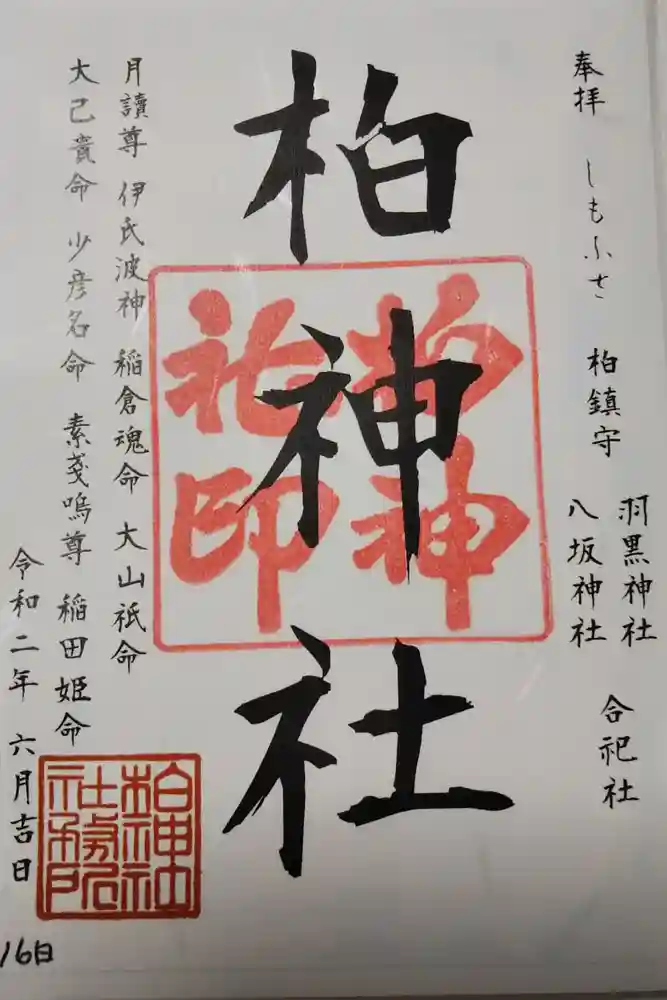 奉拝 しもふさ 柏鎮守
羽黒神社
八坂神社
合祀社
柏神社
柏神社印
月讀尊 伊氐波神 稲倉魂命 大山祇命
大己貴命 少彦名命 素戔嗚尊 稲田姫命
令和二年 六月吉日
柏神社社務所
16日